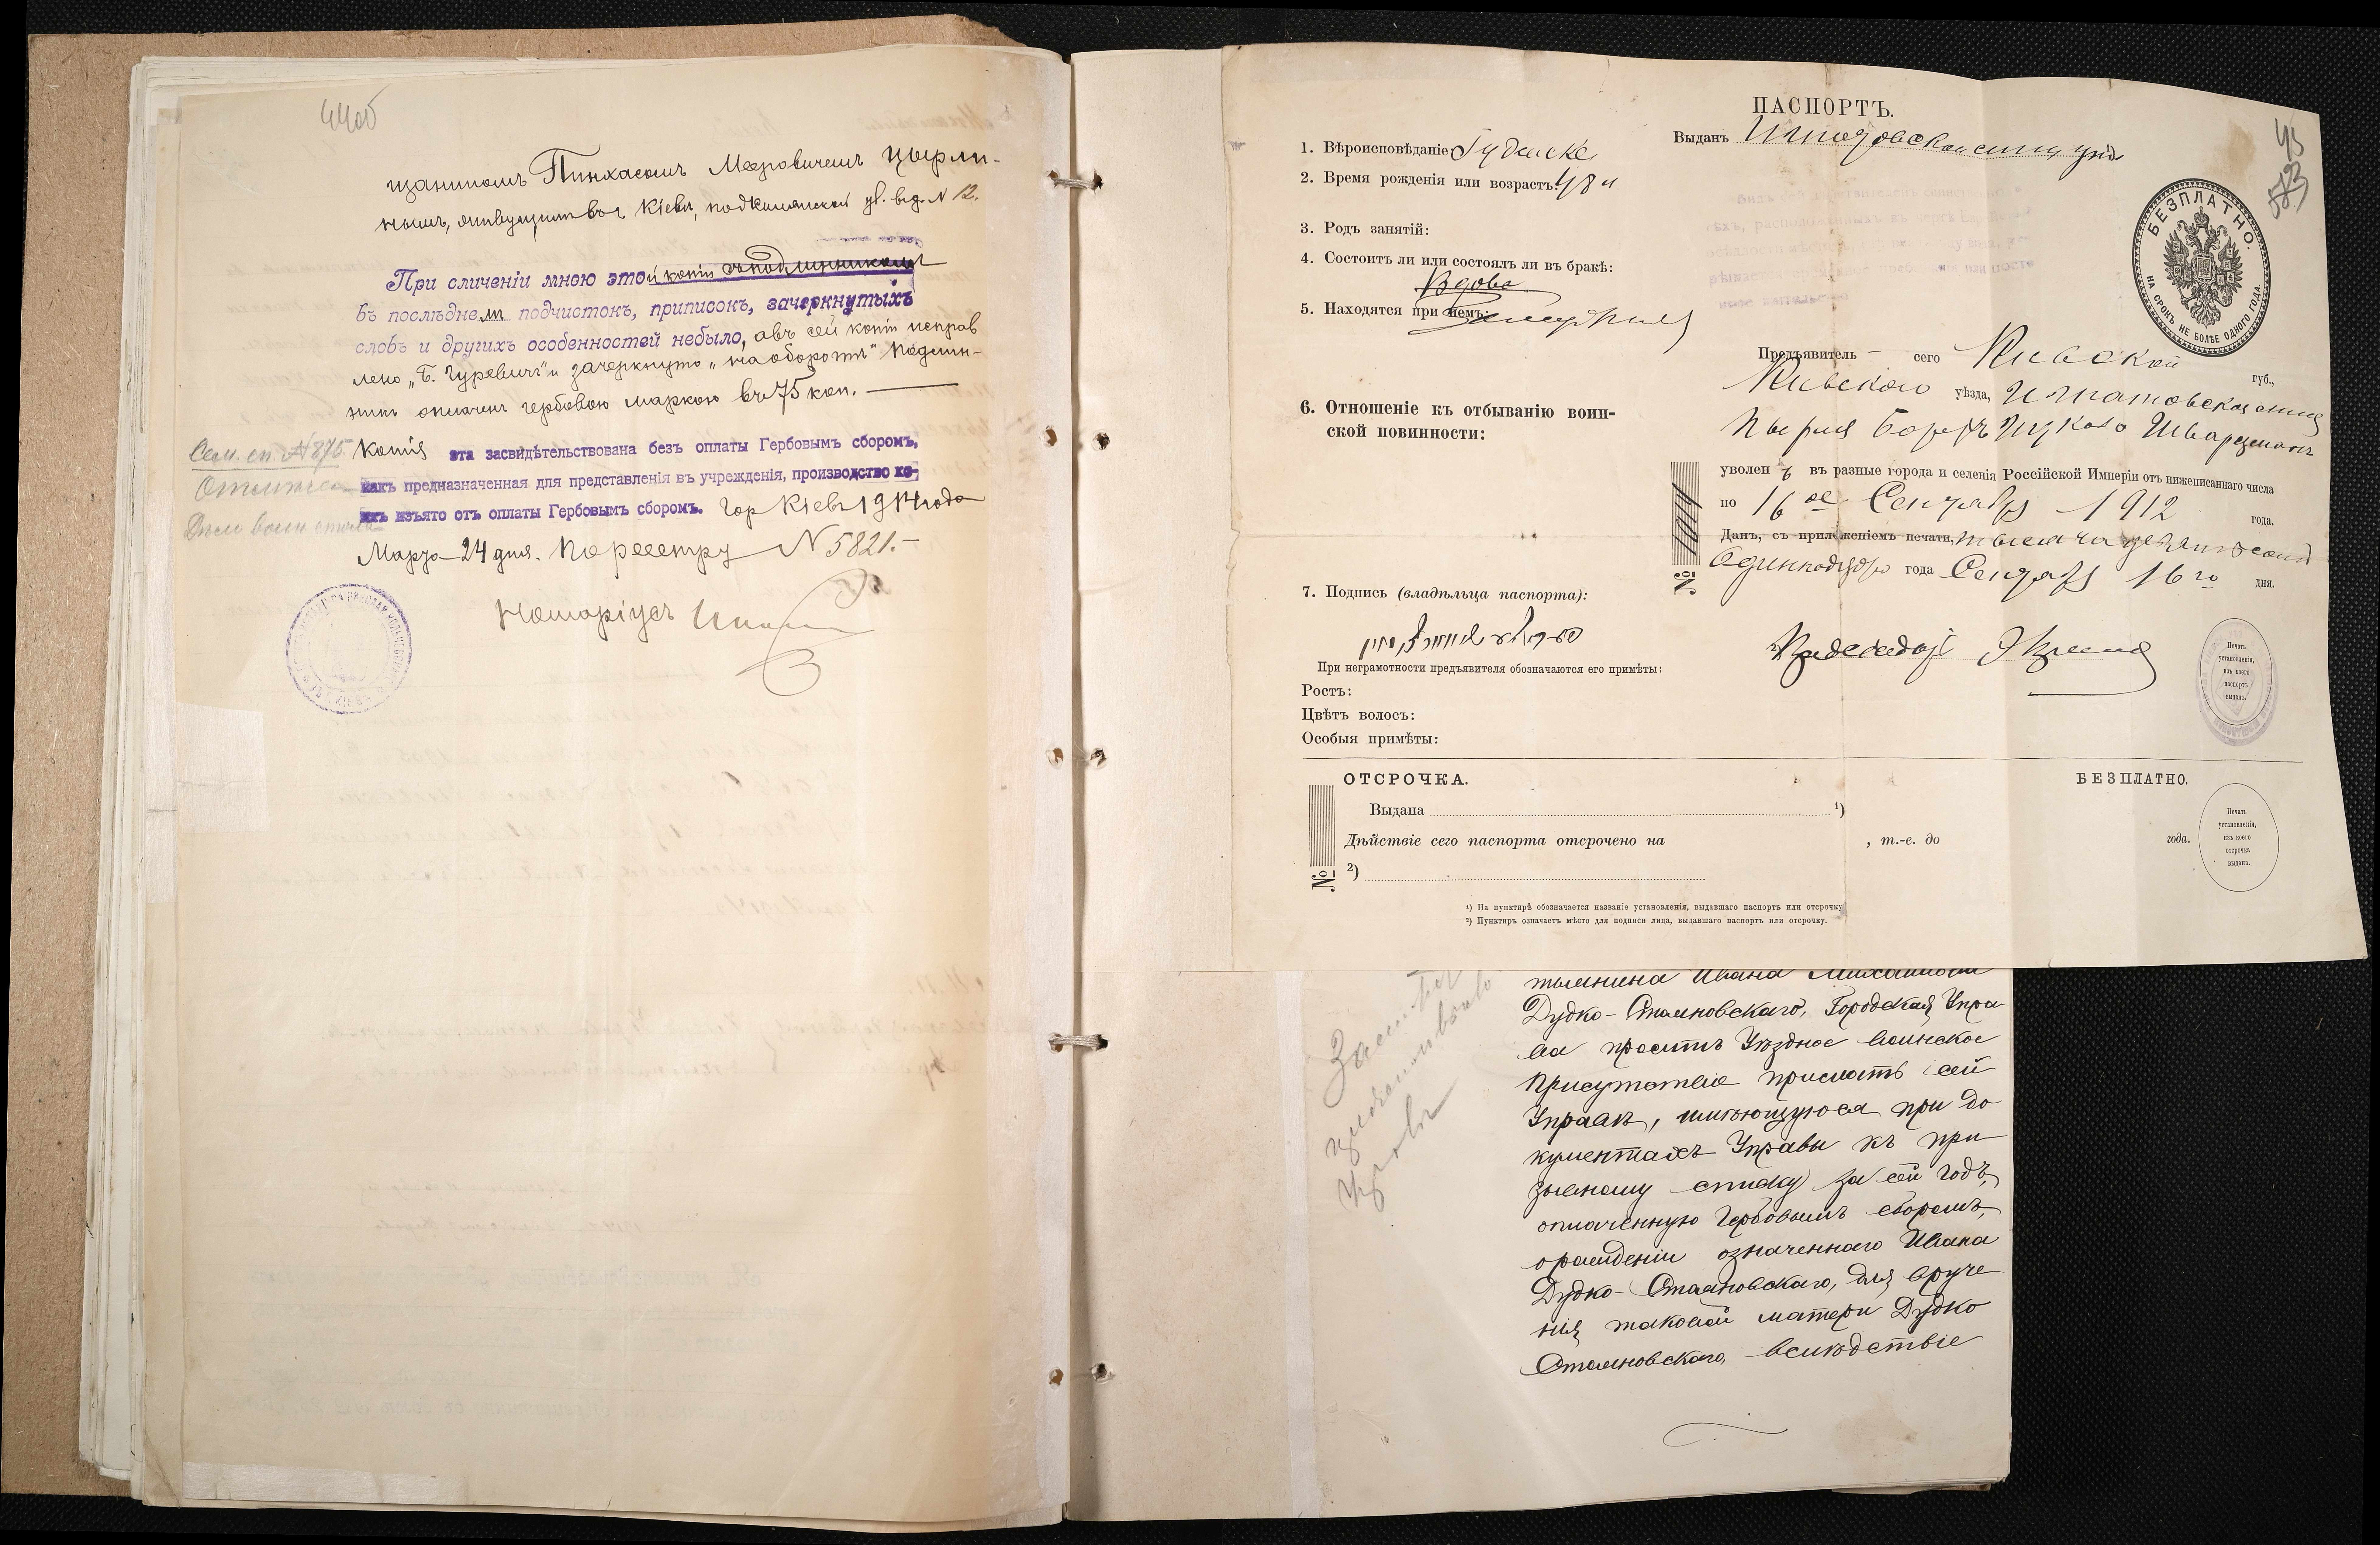 44об
щаниномъ Пинхасомъ Мееровичемъ Цырли-
нымъ, живущимъ въ г Кіевѣ, по ул. въ д. N 12.
При сличеніи мною этой копіи съ подлинникомъ
въ послѣднемъ подчистокъ, приписокъ, зачеркнутыхъ
словъ и другихъ особенностей небыло, а въ сей копіи исправ
лено „Б. Гуревичъ" и зачеркнуто „на оборотѣ" Подлин-
никъ оплаченъ гербовою маркою въ 75 коп.
Сем. сп. № 875
Копія эта засвидѣтельствована безъ оплаты Гербовымъ сборомъ,
какъ предназначенная для представленія въ учрежденія, производство ко-
ихъ изъято отъ оплаты Гербовымъ сборомъ. Гор Кіевъ 1914 года
Марта 24 дня. По реестру N 5821.
Нотаріусъ
ПАСПОРТЪ.
45
Выданъ
1. Вѣроисповѣданіе Іудейске
2. Время рожденія или возрастъ: 48 л
3. Родъ занятій:
4. Состоитъ ли или состоялъ ли въ бракѣ:
Вдова
5. Находятся при немъ:
6. Отношеніе къ отбыванію воин-
ской повинности:
7. Подпись (владѣльца паспорта):
При неграмотности предъявителя обозначаются его примѣты:
Ростъ:
Цвѣтъ волосъ:
Особыя примѣты:
БЕЗПЛАТНО.
НА СРОКЪ НЕ БОЛѢЕ ОДНОГО ГОДА.
Предъявитель сего Кіевской губ.,
Кіевскаго уѣзда, Игнатовской
Шварцманъ
уволен ъ въ разные города и селенія Россійской Имперіи отъ нижеписаннаго числа
по 16 ое Сентября 1912 года.
Данъ, съ приложеніемъ печати, тысяча девятьсотъ
одиннадца года Сентября 16 го дня.
№ 1014
Печать
установленія,
изъ коего
паспортъ
выданъ.
ОТСРОЧКА.
БЕЗПЛАТНО.
Выдана ¹)
Дѣйствіе сего паспорта отсрочено на , т.-е. до года.
²)
№
Печать
установленія,
изъ коего
отсрочка
выдана.
¹) На пунктирѣ обозначается названіе установленія, выдавшаго паспортъ или отсрочку.
²) Пунктиръ означаетъ мѣсто для подписи лица, выдавшаго паспортъ или отсрочку.
Ивана Михайлова
Дудко-Стаяновскаго, Городская Упра
ва проситъ Уѣздное воинское
Присутствіе прислать сей
Управѣ, имѣющуюся при до
кументахъ Управы къ при
зывному списку за сей годъ,
оплаченную Гербовымъ сборомъ,
орожденіи означеннаго Ивана
Дудко-Стаяновскаго, для вруче
нія таковой матери Дудко
Стаяновскаго, вслѣдствіе